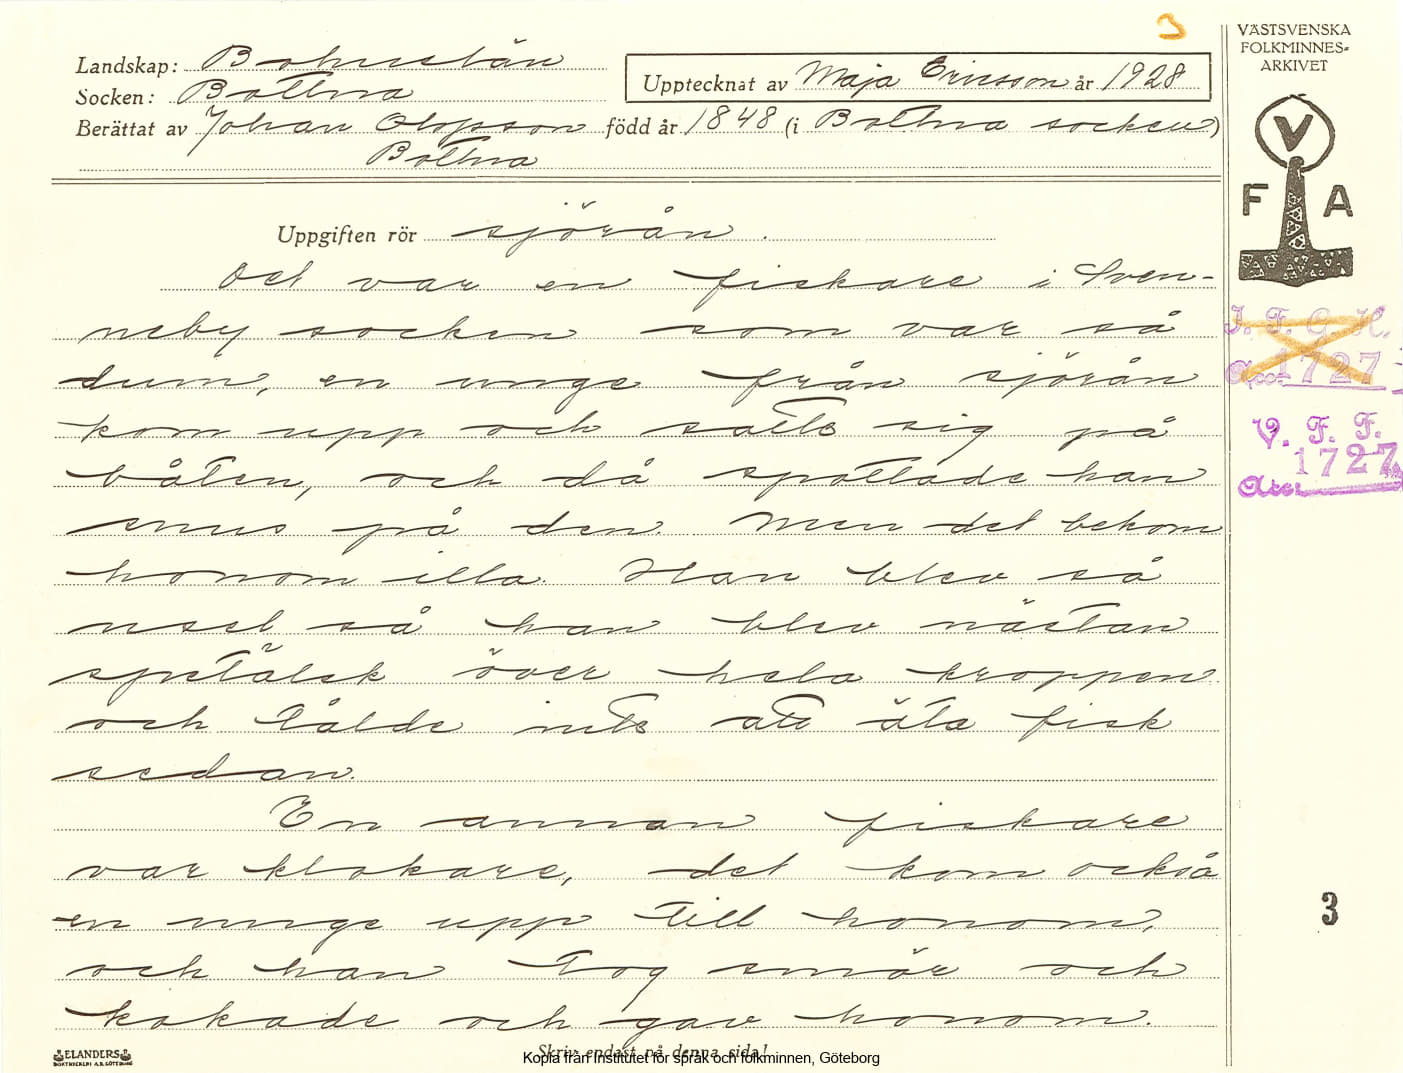 3
VÄSTSVENSKA
FOLKMINNES-
ARKIVET
Landskap: Bohuslän
Socken: Bottna
Upptecknat av Maja Ericsson år 1928
Berättat av Johan Olopson född år 1848 (i Bottna socken)
Bottna
V
F A
Uppgiften rör sjörån.
Det var en fiskare i Sven-
neby socken som var så
dum, en unge från sjörån
kom upp och satte sig på
båten, och då spottade han
snus på den. Men det bekom
honom illa. Han blev så
usel så han blev nästan
spetälsk över hela kroppen
och tålde inte att äta fisk
sedan.
En annan fiskare
var klokare, det kom också
en unge upp till honom,
och han tog smör och
kokade och gav honom.
I. F. G. H.
Acc. 1727
V. F. F.
1727
Acc:
3
ELANDERS
BOKTRYCKERI A.B. GÖTEBORG
Skriv endast på denna sida!
Kopia från Institutet för språk och folkminnen, Göteborg